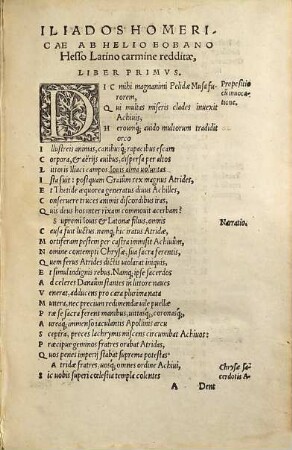 ILIADOS HOMERI-
CAE AB HELIO EOBANO
Hesso Latino carmine redditæ,
LIBER PRIMVS.
DIC mihi magnanimi Pelidæ Musa fu-
rorem,
Qui multas miseris clades inuexit
Achiuis,
Heroumq; auido multorum tradidit
orco
Propositio
cũ inuoca-
tione.
Illustreis animas, canibusq; rapacibus escam
Corpora, & aërijs auibus, dispersa per altos
Littoris Iliaci campos Iouis alma voluntas
Iste fuit: postquam Graiûm rex magnus Atrides,
Et Thetide æquorea generatus diuus Achilles,
Conseruere truces animi discordibus iras,
Quis deus hos inter rixam commouit acerbam?
Supremi Iouis & Latonæ filius, omnis
Narratio.
Causa fuit luctus, namq; hic iratus Atridæ,
Mortiferam pestem per castra immisit Achiuûm,
Nomine contempti Chrysæ, sua sacra ferentis,
Quem ferus Atrides dictis violarat iniquis,
Et simul indignis rebus. Namq; ipse sacerdos
Ad celeres Danaûm stantes in littore naues
Venerat, adducens pro cara plurima nata
Munera, nec precium redimendæ vile puellæ
Præ se sacra ferens manibus, vittamq;, coronasq;,
Atq; immenso iaculantis Apollinis arcu
Sceptra, preces lachrymis miscens circumibat Achiuos:
Præcipue geminos fratres orabat Atridas,
Quos penes imperij stabat suprema potestas
Atridæ fratres, vosq; omnes ordine Achiui,
Chrysæ sa-
cerdotis A-
Sic vobis superi cœlestia templa colentes
A
Dent